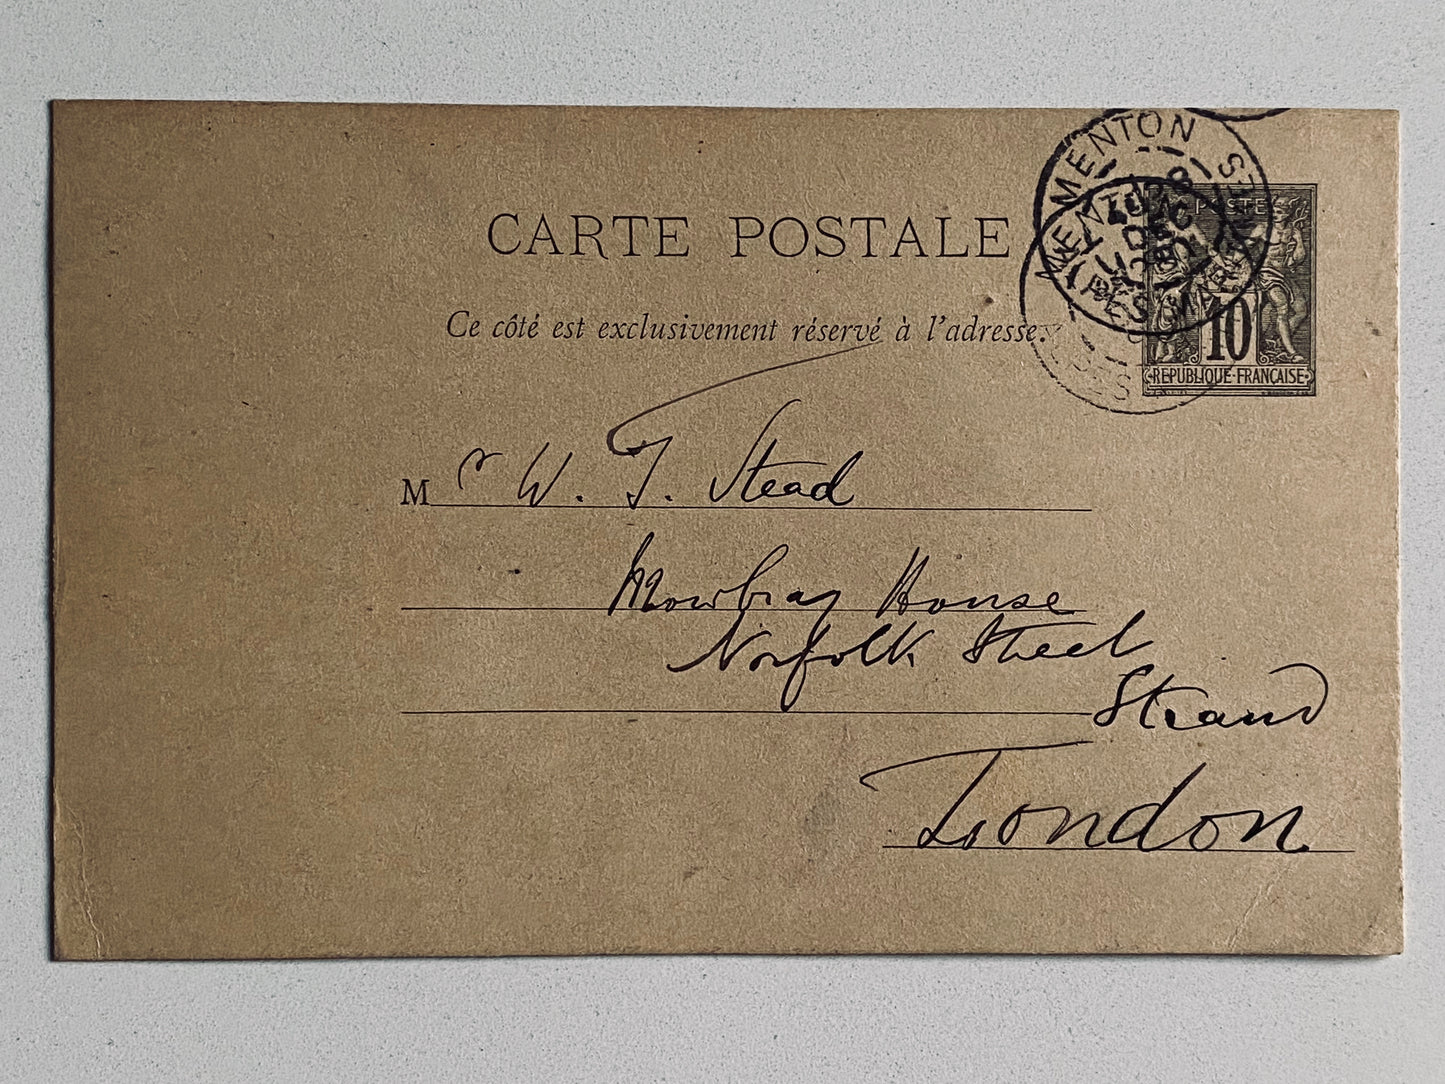 MENTON
POSTE
CARTE POSTALE
Ce côté est exclusivement réservé à l'adresse.
10
REPUBLIQUE FRANÇAISE
Mr W. T. Stead
Mowbray House
Norfolk Street
Strand
London